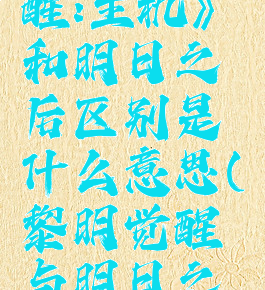 醒:生机》
和明日之
后区别是
什么意思(
黎明觉醒
与明日之